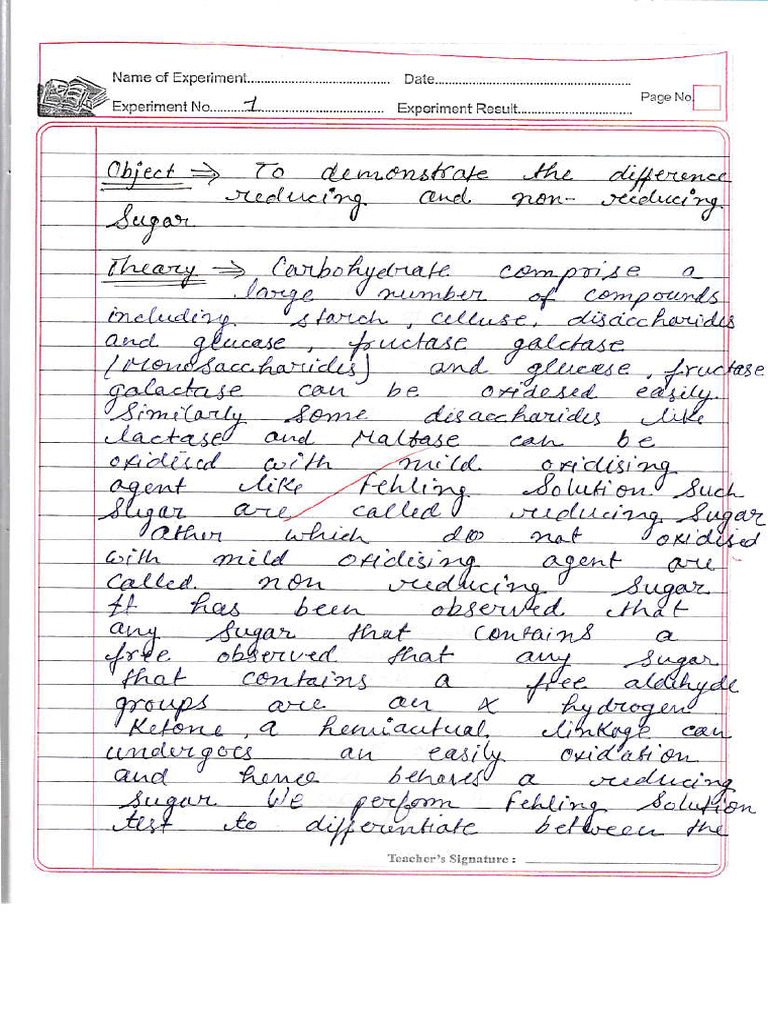 Name of Experiment.................................... Date.....................................................
Experiment No.........1.................................. Experiment Result..............................
Page No.
Object ⇒ To demonstrate the difference
reducing and non-reducing
Sugar
Theary ⇒ Carbohydrate comprise a
large number of compounds
including starch, celluse, disaccharides
and glucase, fructase galctase
(Monosaccharides) and glucase, fructase
galactase can be oxidesed easily.
Similarly some disaccharides like
lactase and Maltase can be
oxidised with mild oxidising
agent like Fehling Solution Such
Sugar are called reducing Sugar
Other which do not oxidised
with mild oxidising agent are
Called non reducing Sugar
It has been observed that
any Sugar that contains a
free observed that any Sugar
that contains a free aldehyde
groups are an x hydrogen
Ketone, a hemiautual, linkage can
undergoes an easily oxidation
and hence behaves a reducing
Sugar We perform Fehling Solution
test to differentiate between the
Teacher's Signature : ______________________